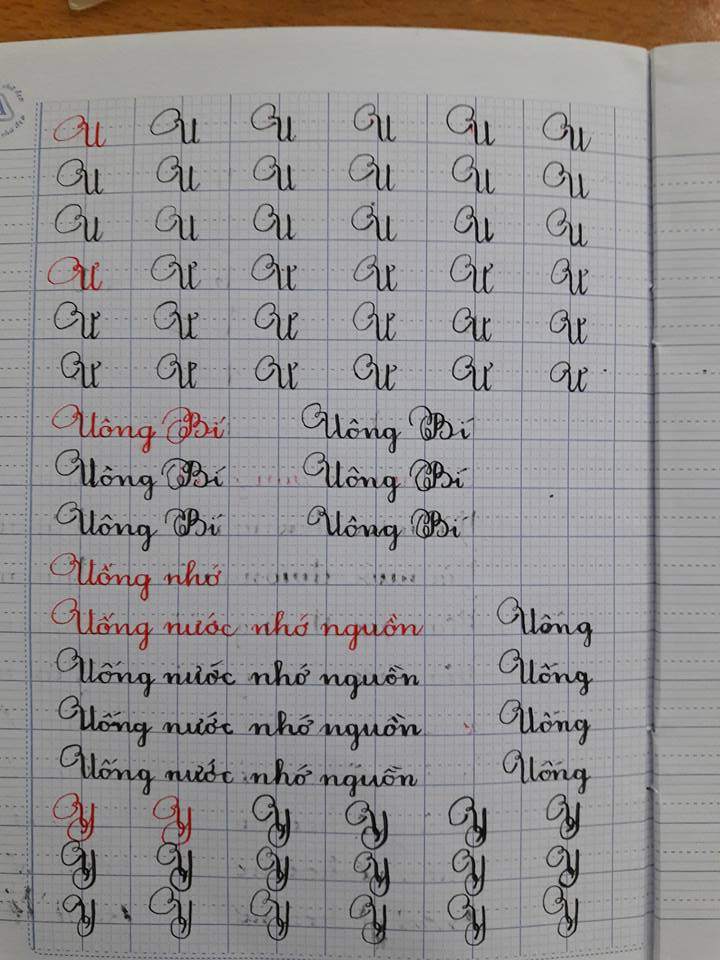 U U U U U U
U U U U U U
U U U U U U
Ư Ư Ư Ư Ư Ư
Ư Ư Ư Ư Ư Ư
Ư Ư Ư Ư Ư Ư
Uông Bí Uông Bí
Uông Bí Uông Bí
Uông Bí Uông Bí
Uống nhớ
Uống nước nhớ nguồn Uống
Uống nước nhớ nguồn Uống
Uống nước nhớ nguồn Uống
Uống nước nhớ nguồn Uống
Y Y Y Y Y Y
Y Y Y Y Y Y
Y Y Y Y Y Y